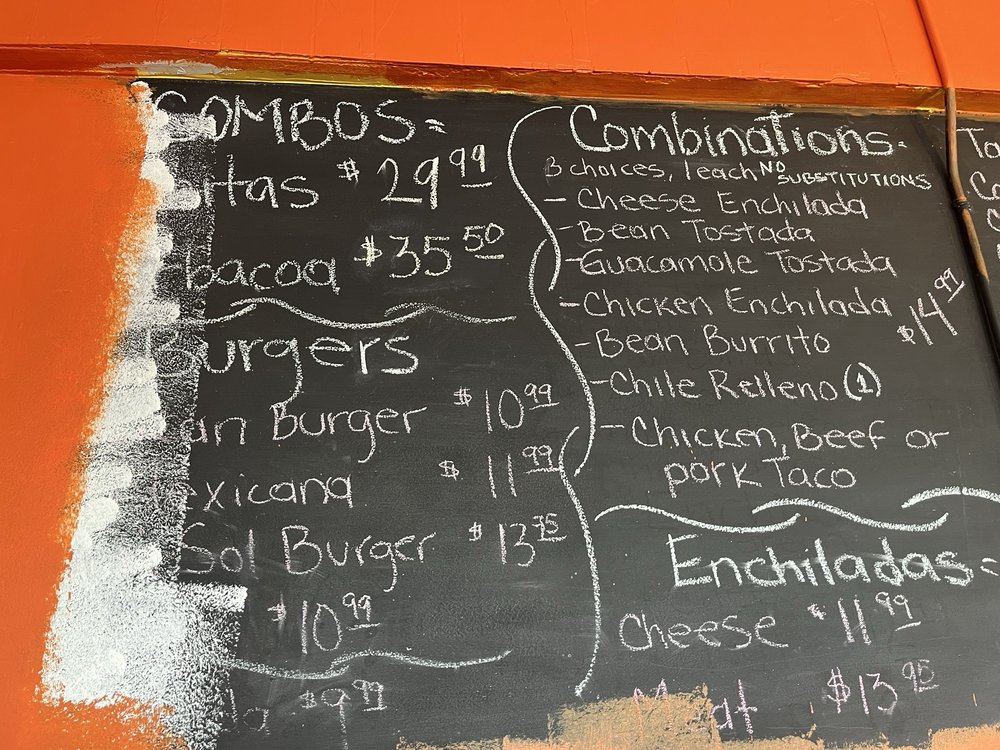 COMBOS=
itas $29.99
bacoa $35.50
Burgers
an Burger $10.99
exicana $11.99
Sol Burger $13.75
$10.99
la $9.99
Combinations.
3 choices, 1 each NO SUBSTITUTIONS
- Cheese Enchilada
- Bean Tostada
- Guacamole Tostada
- Chicken Enchilada $14.99
- Bean Burrito
- Chile Relleno (1)
- Chicken, Beef or
pork Taco
Enchiladas=
Cheese $11.99
$13.95
Ta